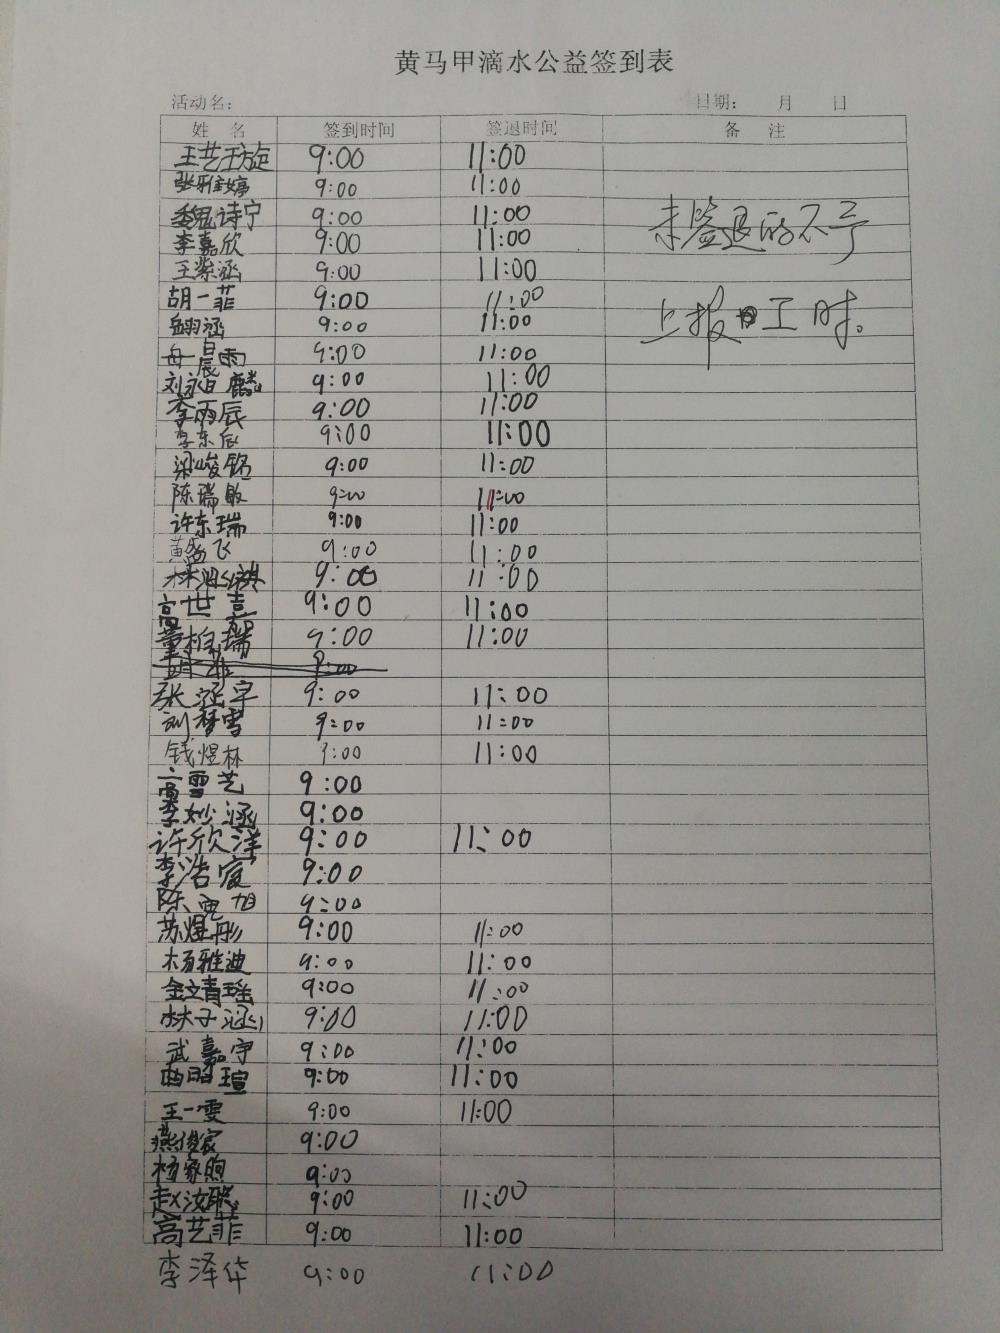 黄马甲滴水公益签到表
活动名： 日期： 月 日
姓 名 签到时间 签退时间 备 注
王艺璇 9:00 11:00
张雅婷 9:00 11:00
魏诗宁 9:00 11:00 未签退的不予
李嘉欣 9:00 11:00
王紫涵 9:00 11:00
胡一菲 9:00 11:00 上报工时。
翩涵 9:00 11:00
毋晨雨 9:00 11:00
刘永麟 9:00 11:00
李雨辰 9:00 11:00
李东辰 9:00 11:00
梁峻铭 9:00 11:00
陈瑞敏 9:00 11:00
许东瑞 9:00 11:00
黄盛飞 9:00 11:00
林祺 9:00 11:00
高世嘉 9:00 11:00
董柏瑞 9:00 11:00
9:00
张涵宇 9:00 11:00
刘梦雪 9:00 11:00
钱煜林 9:00 11:00
高雪艺 9:00
李妙涵 9:00
许欣洋 9:00 11:00
李浩宸 9:00
陈冠旭 9:00
苏煜彤 9:00 11:00
杨雅迪 9:00 11:00
金立青瑶 9:00 11:00
林子涵 9:00 11:00
武嘉宇 9:00 11:00
曲明瑄 9:00 11:00
王一雯 9:00 11:00
燕俊宸 9:00
杨家煦 9:00
赵汝聪 9:00 11:00
高艺菲 9:00 11:00
李泽华 9:00 11:00